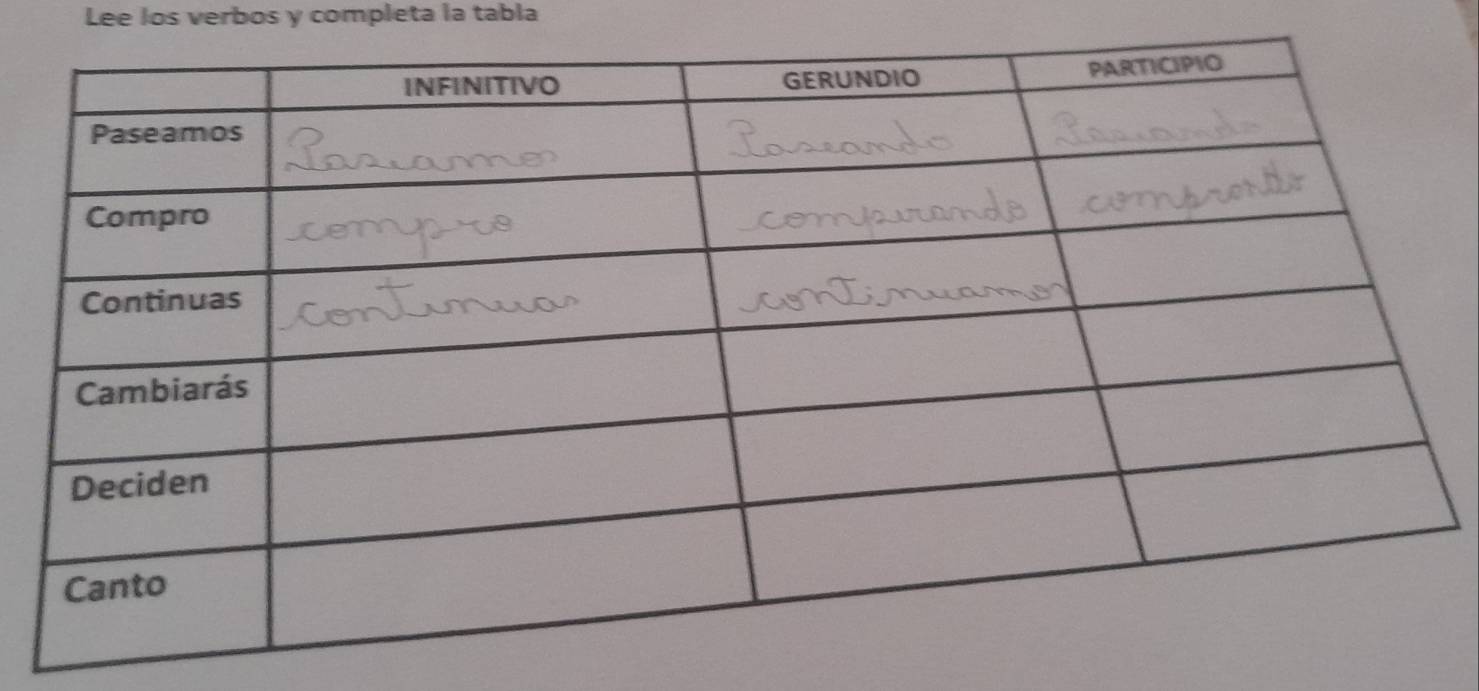 Lee los verbos y completa la tabla
INFINITIVO GERUNDIO PARTICIPIO
Paseamos Paseamos Paseando Paseando
Compro compro comprando comprondo
Continuas continuas continuamos
Cambiarás
Deciden
Canto